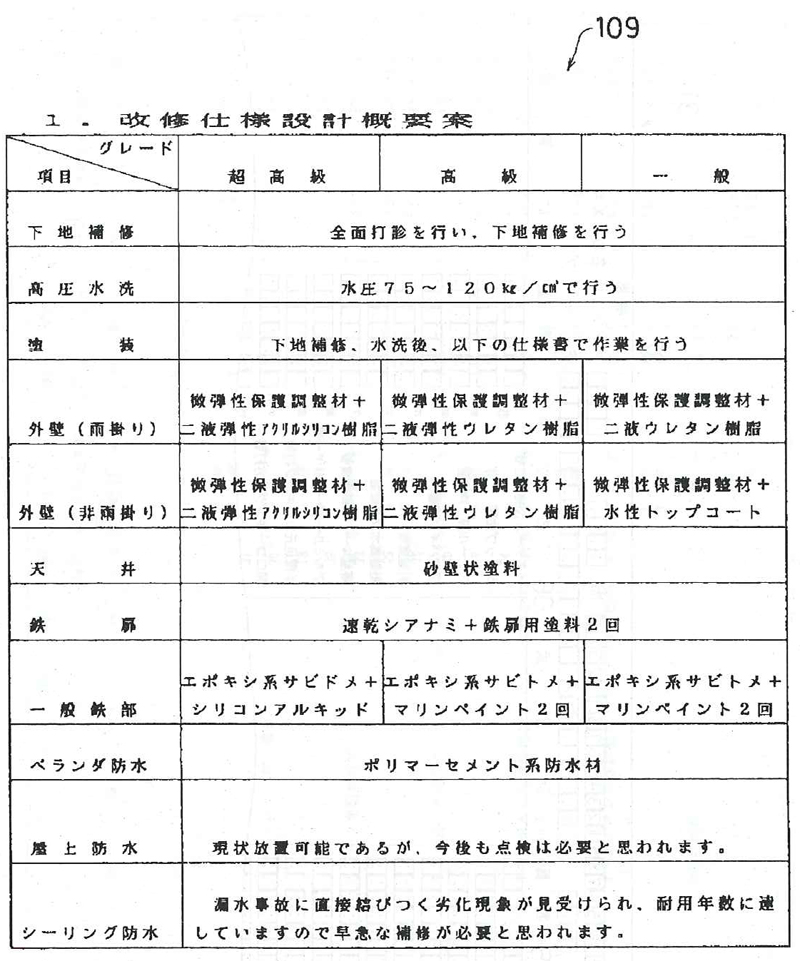 109
1．改修仕様設計概要案
グレード
項目 超高級 高級 一般
下地補修 全面打診を行い、下地補修を行う
高圧水洗 水圧75～120㎏／㎠で行う
塗装 下地補修、水洗後、以下の仕様書で作業を行う
微弾性保護調整材＋ 微弾性保護調整材＋ 微弾性保護調整材＋
外壁（雨掛り） 二液弾性ｱｸﾘﾙｼﾘｺﾝ樹脂 二液弾性ウレタン樹脂 二液ウレタン樹脂
微弾性保護調整材＋ 微弾性保護調整材＋ 微弾性保護調整材＋
外壁（非雨掛り） 二液弾性ｱｸﾘﾙｼﾘｺﾝ樹脂 二液弾性ウレタン樹脂 水性トップコート
天井 砂壁状塗料
鉄扉 速乾シアナミ＋鉄扉用塗料2回
エポキシ系サビドメ＋ エポキシ系サビトメ＋ エポキシ系サビトメ＋
一般鉄部 シリコンアルキッド マリンペイント2回 マリンペイント2回
ベランダ防水 ポリマーセメント系防水材
屋上防水 現状放置可能であるが、今後も点検は必要と思われます。
漏水事故に直接結びつく劣化現象が見受けられ、耐用年数に達
シーリング防水 していますので早急な補修が必要と思われます。